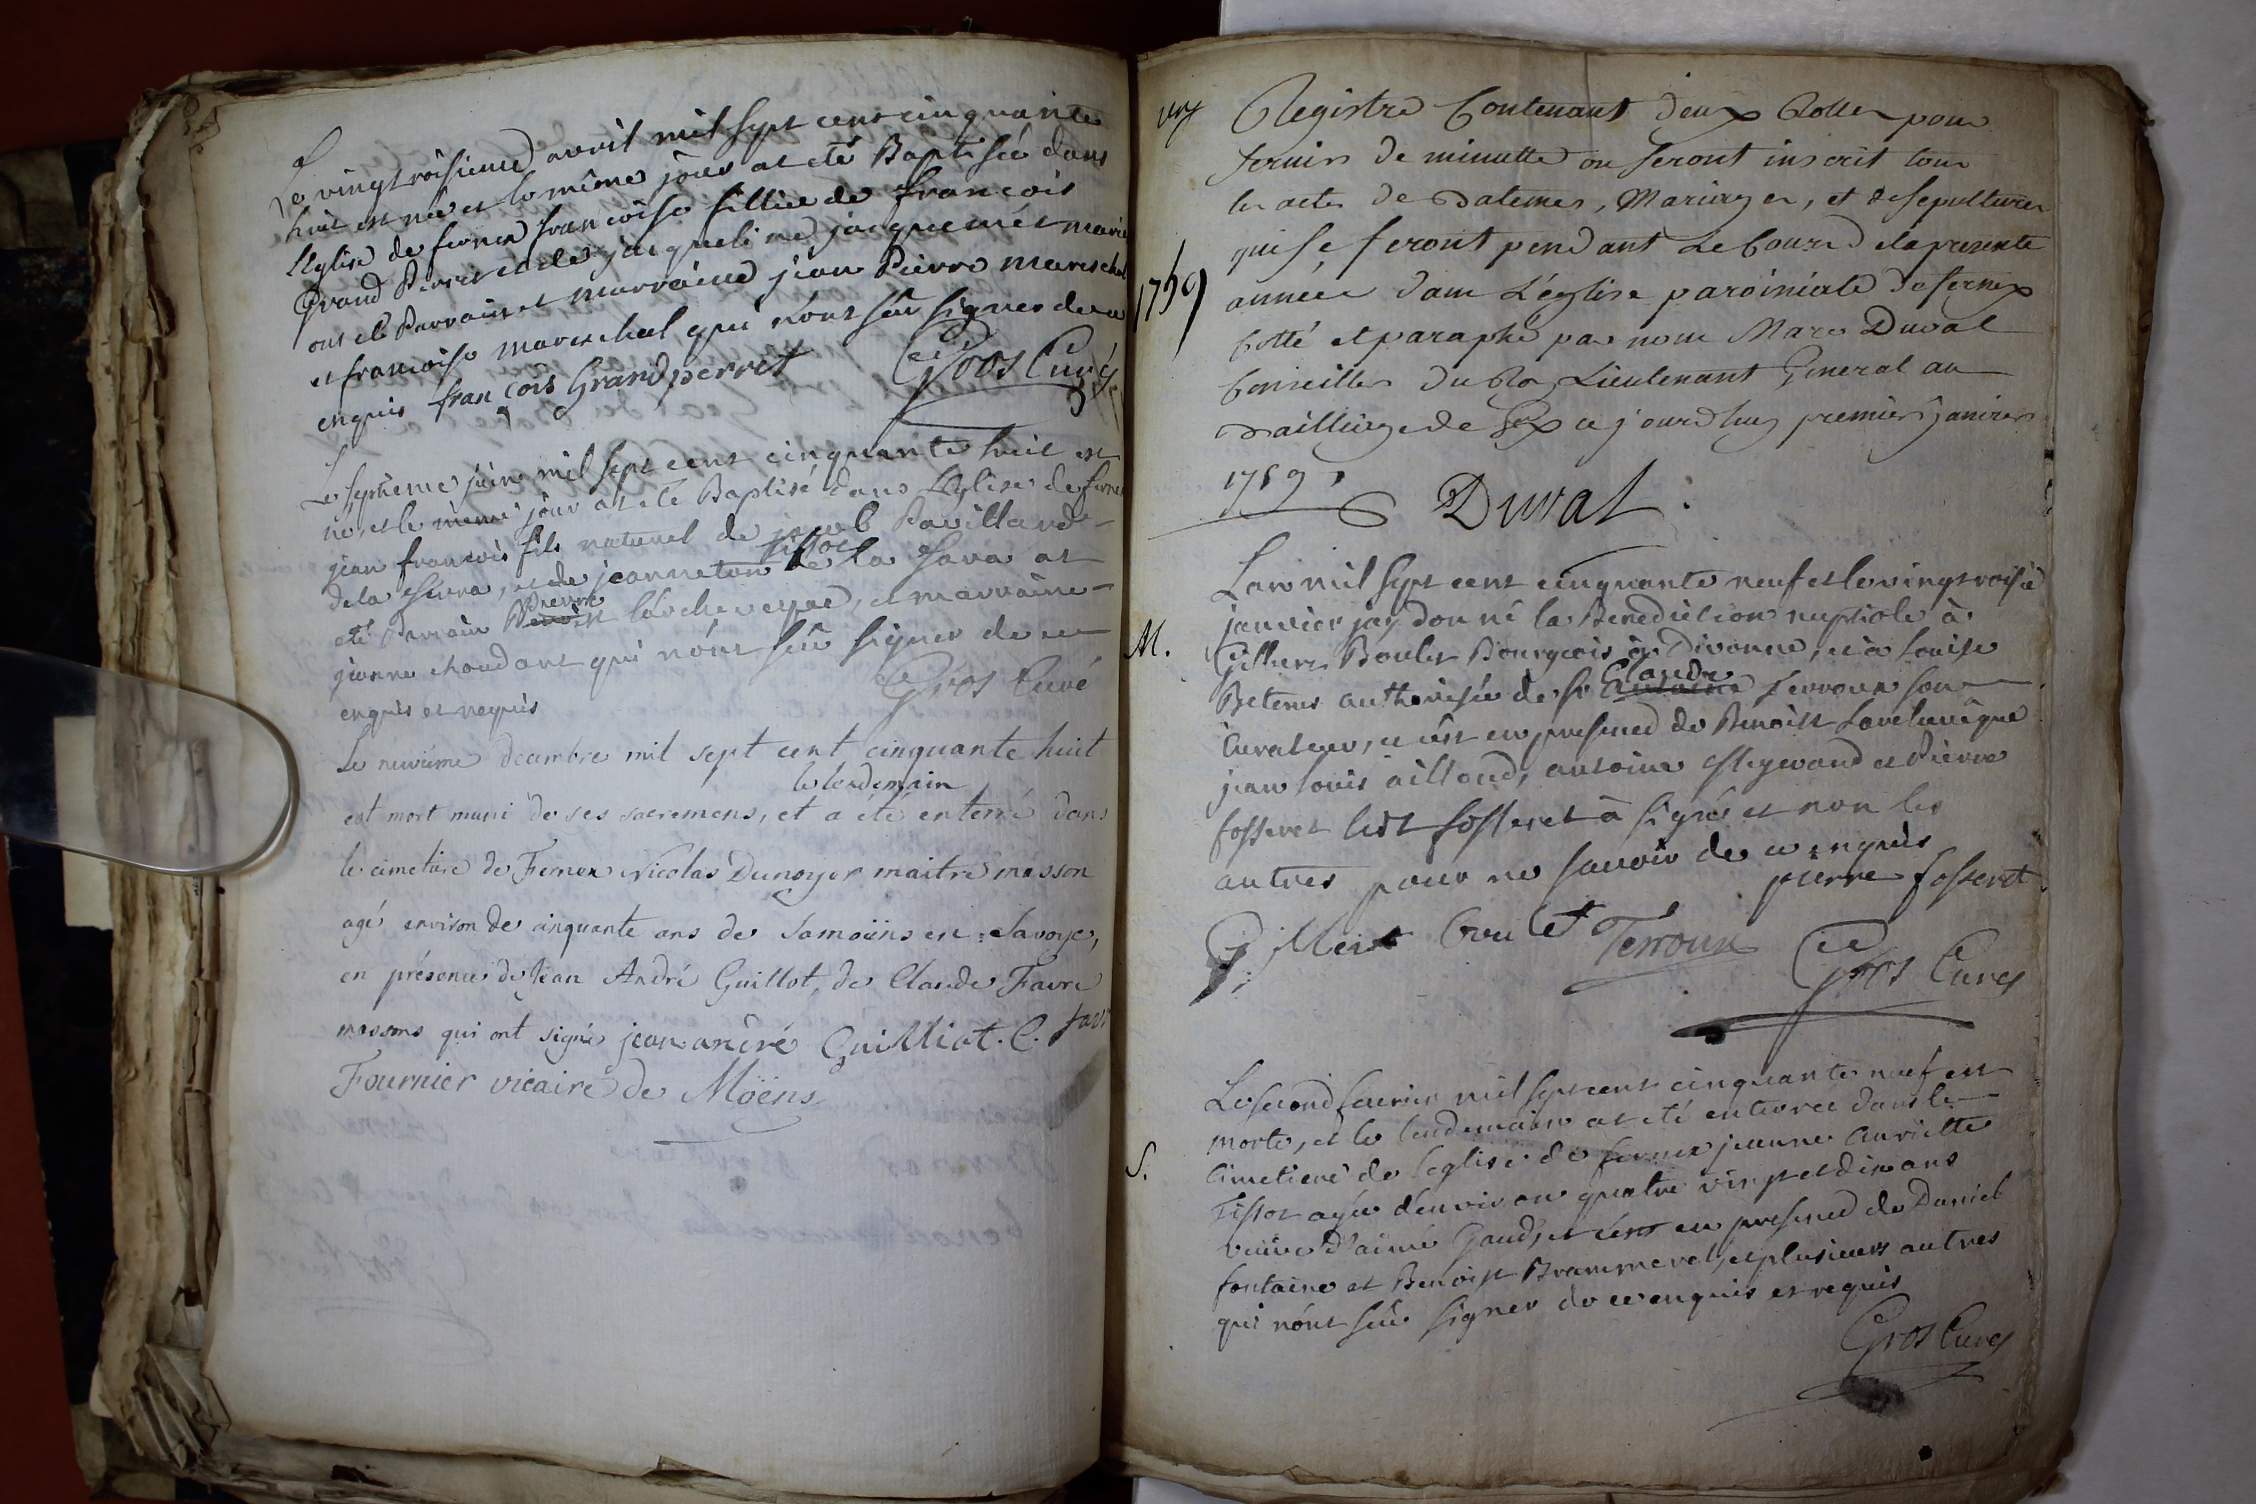 Le vingtroisieme avril mil sept cent cinquante
huit est née et le même jour at eté Baptisée dans
L'Eglise de fernex françoise fillie de françois
Grand Perret et de jacqueline jacquemet marié
ont eté Parrain et marraine jean Pierre mareschal
et françoise mareschal qui n'ont sçu signer de ce
enquis françois Grandperret Gros Curé
Le septieme juin mil sept cent cinquante huit est
né, et le même jour at eté Baptisé dans L'Eglise de fernex
jean françois fils naturel de jacob Pavillard
tissot
de la Serra, et de jeanneton de la Sara at
Pierre
eté Parrain Benoist levcheveque, et marraine
jeanne chaudant qui n'ont sçu signer de ce
enquis et requis Gros Curé
Le neuvieme decembre mil sept cent cinquante huit
le lendemain
est mort muni de ses sacremens, et a été enterré dans
le cimetiere de Fernex Nicolas Dunoyer maitre masson
agé environ de cinquante ans de Samoïns en Savoye,
en présence de Jean André Guillot, de Claude Favre
massons qui ont signé jean andré Guilliot. C. favr
Fournier vicaire de Moëns
Registre Contenant deux Rolles pour
servir de minutte ou seront inscrit tous
les actes de Batemes, Mariages, et de sepultures
qui se feront pendant Le Cours de la presente
1759
année dans L'église paroissiale de fernex
Cotté et paraphé par nous Marc Duval
Conseiller du Roy Lieutenant General au
Bailliage de Gex ce jourdhuy premier janvier
1759 Duval
L'an mil sept cent cinquante neuf et le vingtroisie
janvier jay donné la Benediction nuptiale à
M.
Gilbert Boulet Bourgeois de Divonne, et à Louise
Claude
Betems authorisée de sr Antoine Terroux son
Curateur, et c'est en presence de Benoist Levcheveque
jean louis aillaud, antoine Meynand et Pierre
fosseret ledt fosseret à signé et non les
autres pour ne savoir de ce enquis
pierre fosseret
Gillbert boulet Terroux Gros Curé
Le second fevrier mil sept cent cinquante neuf est
morte, et le lendemain at eté enterree dans le
cimetiere de l'eglise de fernex jeanne Curiette
S.
Tissot agée d'environ quatre vingt et dix ans
veuve d'aimé Gaud, et c'est en presence de Daniel
fontaine et Benoist Brammerel, et plusieurs autres
qui n'ont sçu signer de ce enquis et requis
Gros Curé